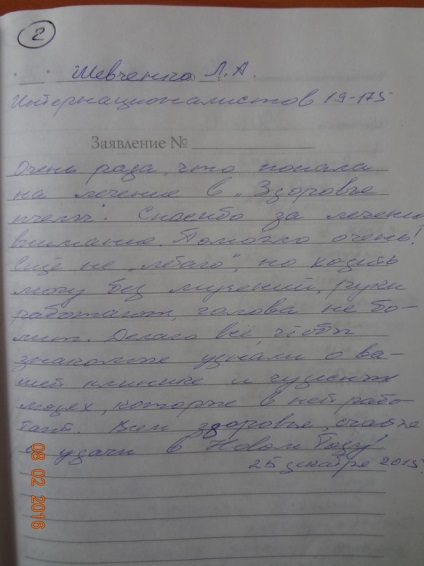 2
Шевченко Л.А.
Интернационалистов 19-175
Заявление №
Очень рада, что попала
на лечение в "Здоровье
пчелы". Спасибо за лечение
внимание. Помогло очень!
Ещё не "лётаю", но ходить
могу без мучений, руки
работают, голова не бо-
лит. Делаю всё чтобы
знакомые узнали о ва-
шей клинике и чудесных
людях, которые в ней рабо-
тают. Вам здоровья, счастье
и удачи в Новом Году!
25 декабря 2015
08 02 2016